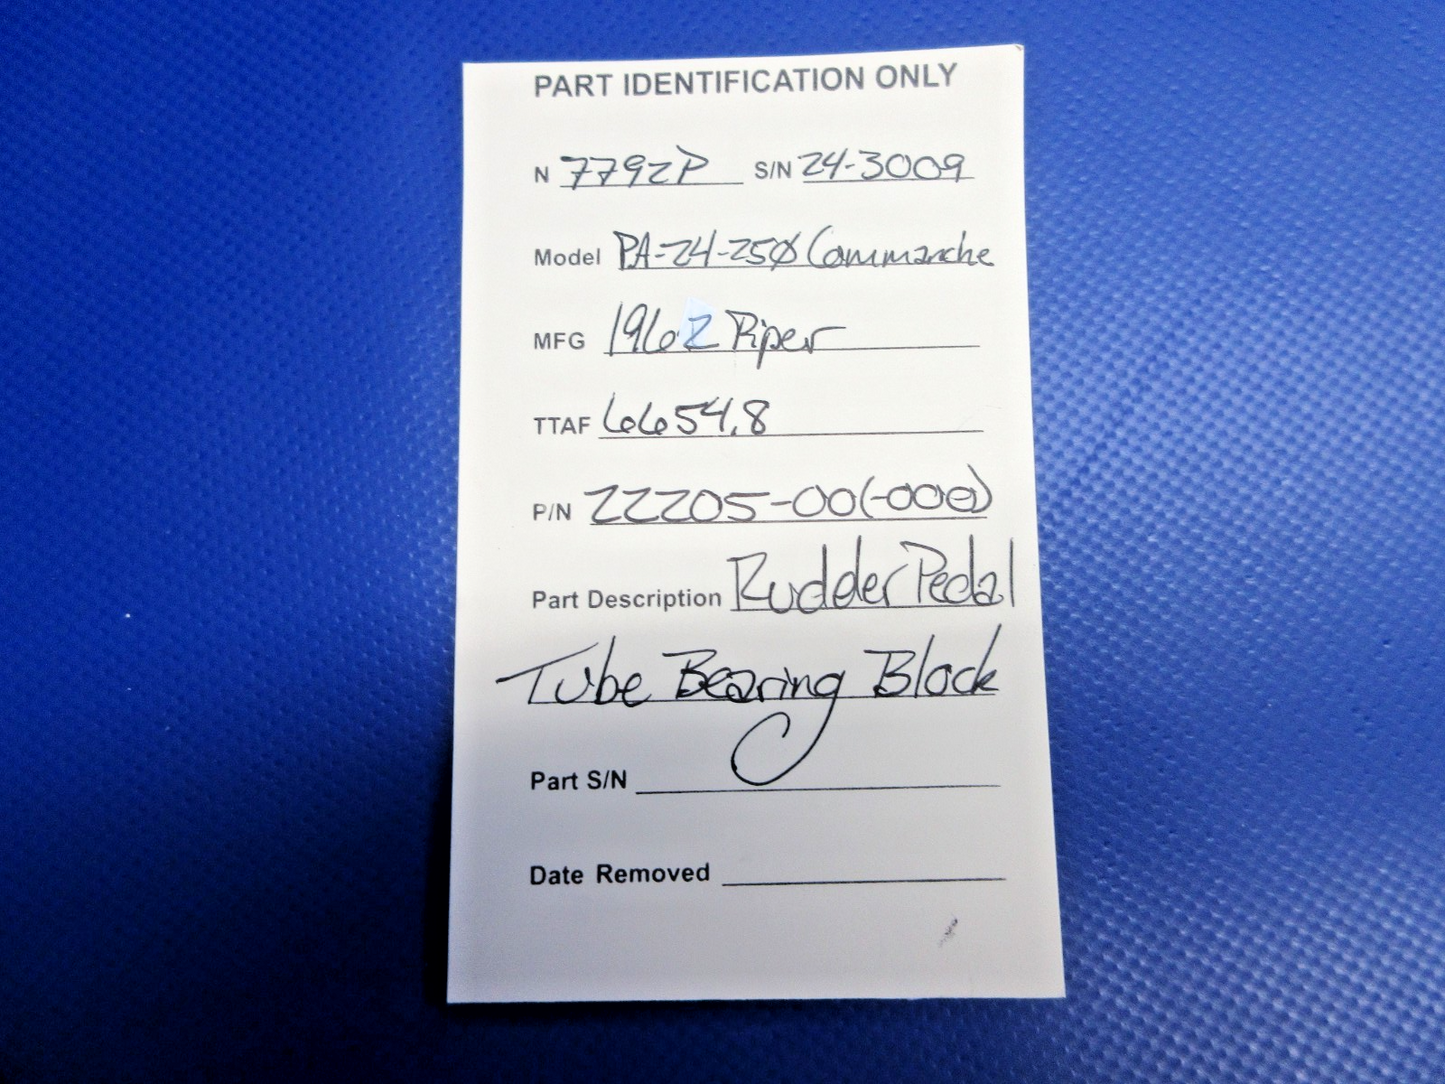 PART IDENTIFICATION ONLY
N 7792P S/N 24-3009
Model PA-24-250 Commanche
MFG 1962 Piper
TTAF 6654.8
P/N 22205-00(-000)
Part Description Rudder Pedal
Tube Bearing Block
Part S/N
Date Removed